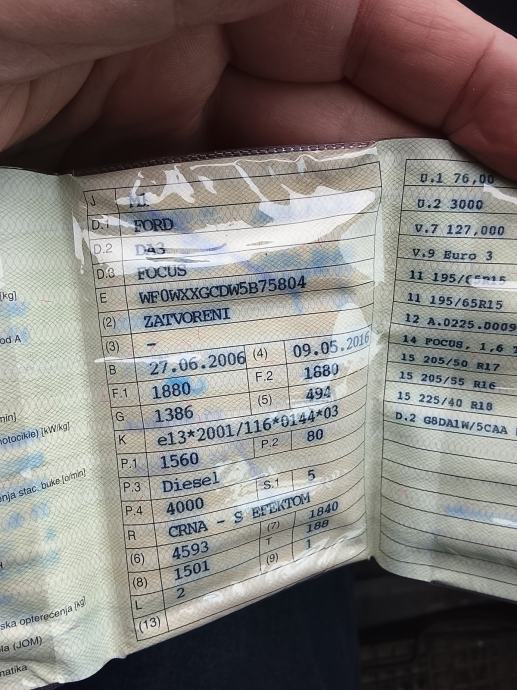 [kg]
od A
min]
motocikle) [kW/kg]
enja stac. buke [o/min]
H
ska opterećenja [kg]
la (JOM)
matika
J M1
D.1 FORD
D.2 DA3
D.3 FOCUS
E WF0WXXGCDW5B75804
(2) ZATVORENI
(3) –
B 27.06.2006 (4) 09.05.2016
F.1 1880 F.2 1880
G 1386 (5) 494
K e13*2001/116*0144*03
P.1 1560 P.2 80
P.3 Diesel S.1 5
P.4 4000
R CRNA - S EFEKTOM
(6) 4593 (7) 1840
(8) 1501 T 188
L 2 (9) 1
(13)
U.1 76,00
U.2 3000
V.7 127,000
V.9 Euro 3
11 195/65R15
11 195/65R15
12 A.0225.0009
14 FOCUS, 1,6
15 205/50 R17
15 205/55 R16
15 225/40 R18
D.2 G8DA1W/5CAA